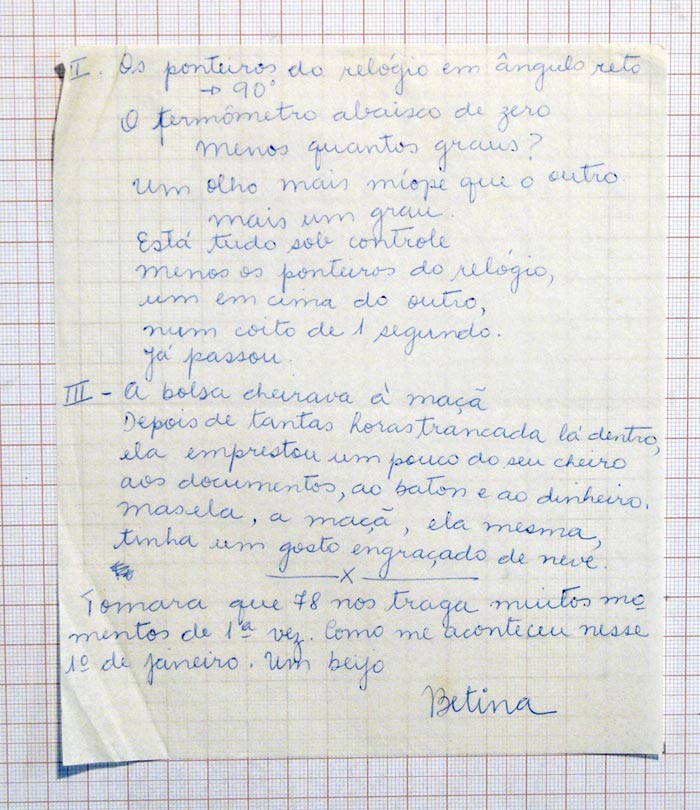 II. Os ponteiros do relógio em ângulo reto
→ 90°
O termômetro abaixo de zero
menos quantos graus?
um olho mais míope que o outro
mais um grau.
Está tudo sob controle
menos os ponteiros do relógio,
um em cima do outro,
num coito de 1 segundo.
Já passou.
III - A bolsa cheirava à maçã
Depois de tantas horas trancada lá dentro,
ela emprestou um pouco do seu cheiro
aos documentos, ao baton e ao dinheiro.
mas ela, a maçã, ela mesma,
tinha um gosto engraçado de neve.
x
Tomara que 78 nos traga muitos mo
mentos de 1ª vez. Como me aconteceu nesse
1º de janeiro. Um beijo
Betina